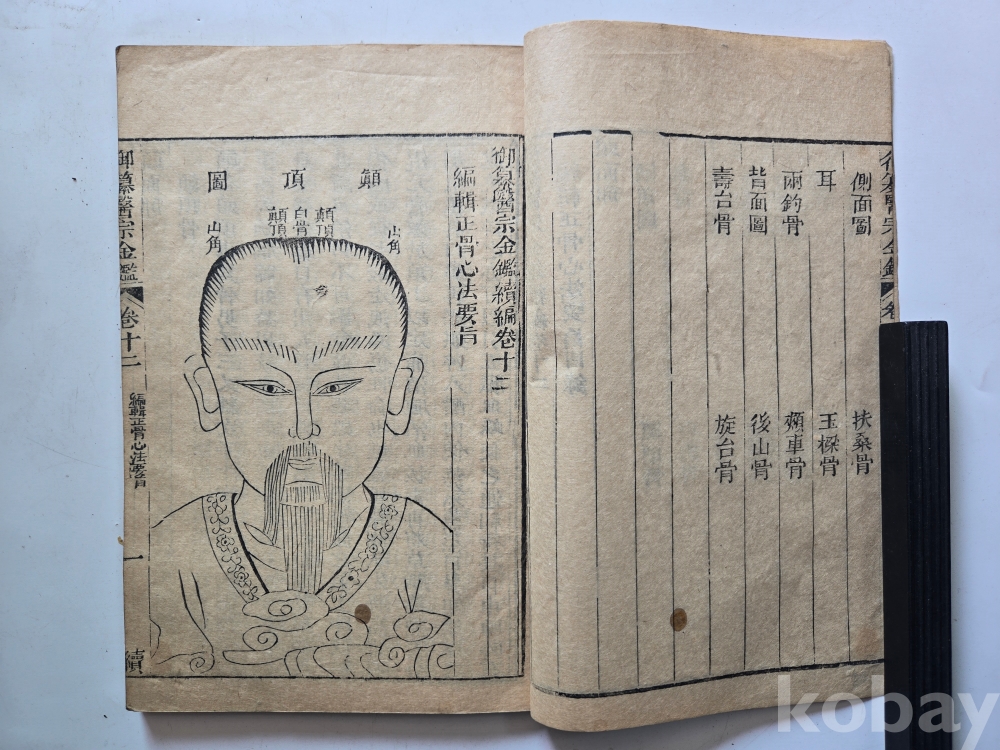 御纂醫宗金鑑 卷
側面圖 扶桑骨
耳 玉樑骨
兩釣骨 頰車骨
背面圖 後山骨
壽台骨 旋台骨
御纂醫宗金鑑續編卷十二
編輯正骨心法要旨
顛頂圖
山角
顛頂
白骨
顛頂
山角
御纂醫宗金鑑 卷十二 編輯正骨心法要旨 一 續
kobay